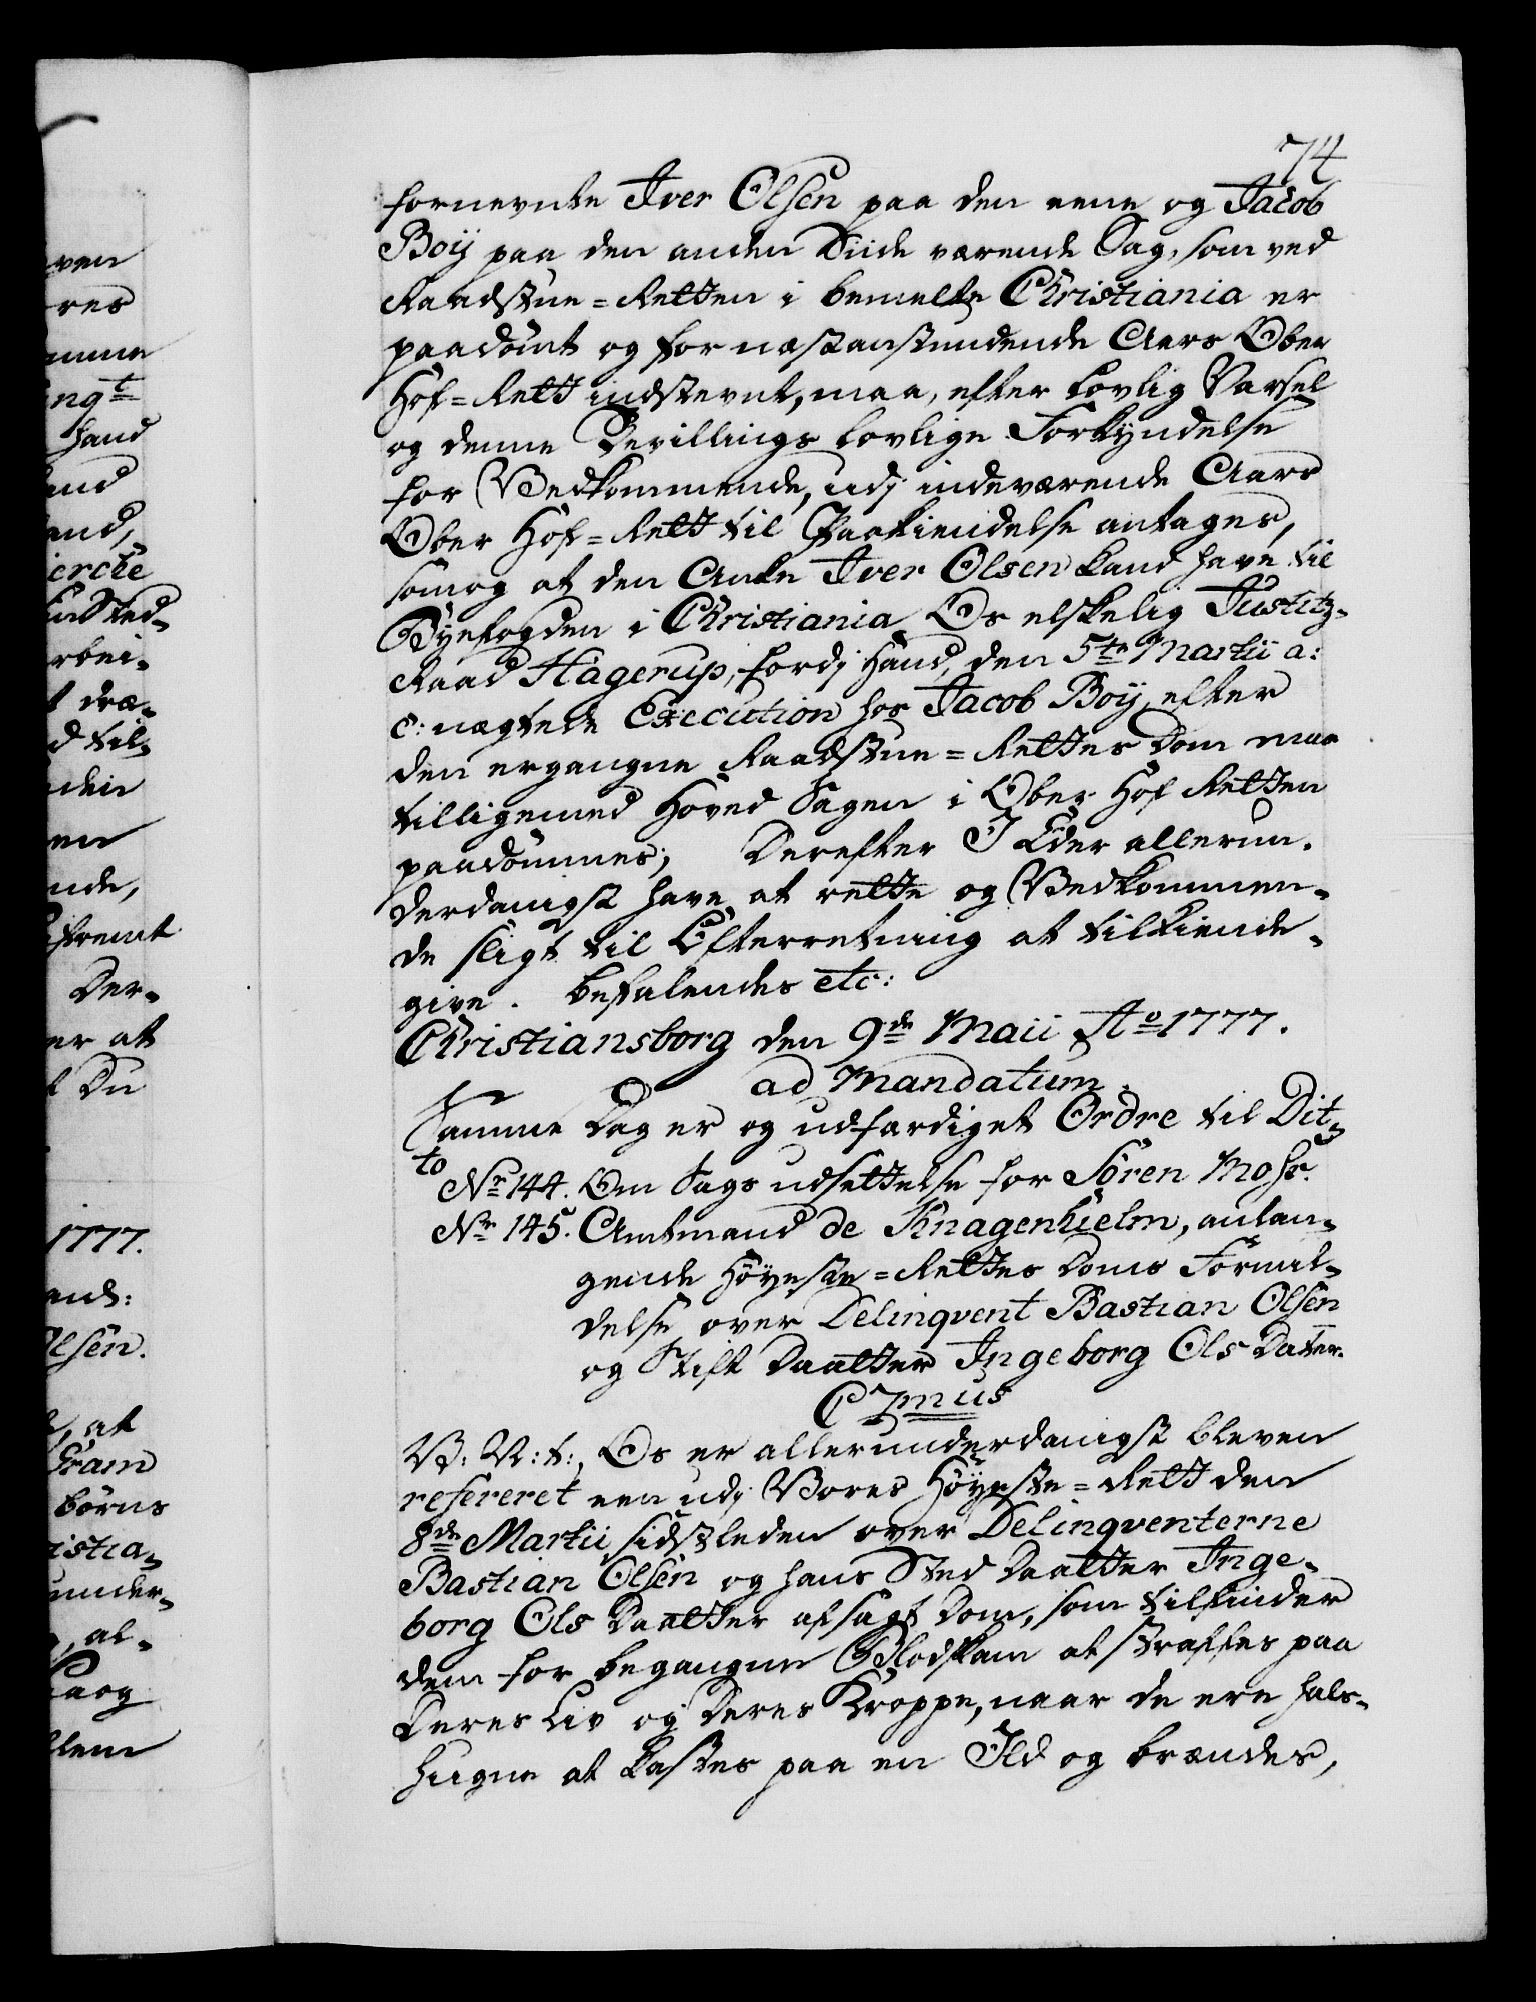 74
fornevnte Iver Olsen paa den eene og Jacob
Boij paa den anden Siide værende Sag, som ved
Raadstue=Retten i bemelte Christiania er
paadömt og for næstanstundende Aars Ober
Hof=Rett indstevnt, maa, efter lovlig Varsel
og denne Bevillings lovlige Forkyndelse
for Vedkommende, udj indeværende Aars
Ober Hof=Rett til Paakiendelse antages,
somog at den Anke Iver Olsen kand have til
Byefogden i Christiania Os elskelig Justitz-
Raad Hagerup, fordj Hand, den 5te Martii a:
c: nægtede Execution hos Jacob Boij, efter
den ergangne Raadstue=Rettes Dom maa
tilligemed Hoved Sagen i Ober Hof Retten
paadömmes; Derefter I Eder allerun-
derdanigst have at rette og Vedkommen-
de sligt til Efterretning at tilkiende-
give. Befalendes etc:
Christiansborg den 9de Maii Ao 1777.
ad Mandatum.
Samme Dag er og udfærdiget Ordre til Dit-
to
Nr 144. Om Sags udsettelse for Sören Mohr.
Nr 145. Amtmand de Knagenhielm, anlan-
gende Höyeste=Rettes Doms Formil-
delse over Delinqvent Bastian Olsen
og Stift Daatter Ingeborg Ols Datter.
C 7mus
V. V: t:, Os er allerunderdanigst bleven
refereret een udj Vores Höyeste=Rett den
8de Martii sidstleden over Delinqventerne
Bastian Olsen og hans Sted Daatter Inge-
borg Ols Daatter afsagt Dom, som tilfinder
dem for begangne Blodskam at straffes paa
Deres Liv og Deres Kroppe, naar de ere hals-
hugne at kastes paa en Ild og brændes,